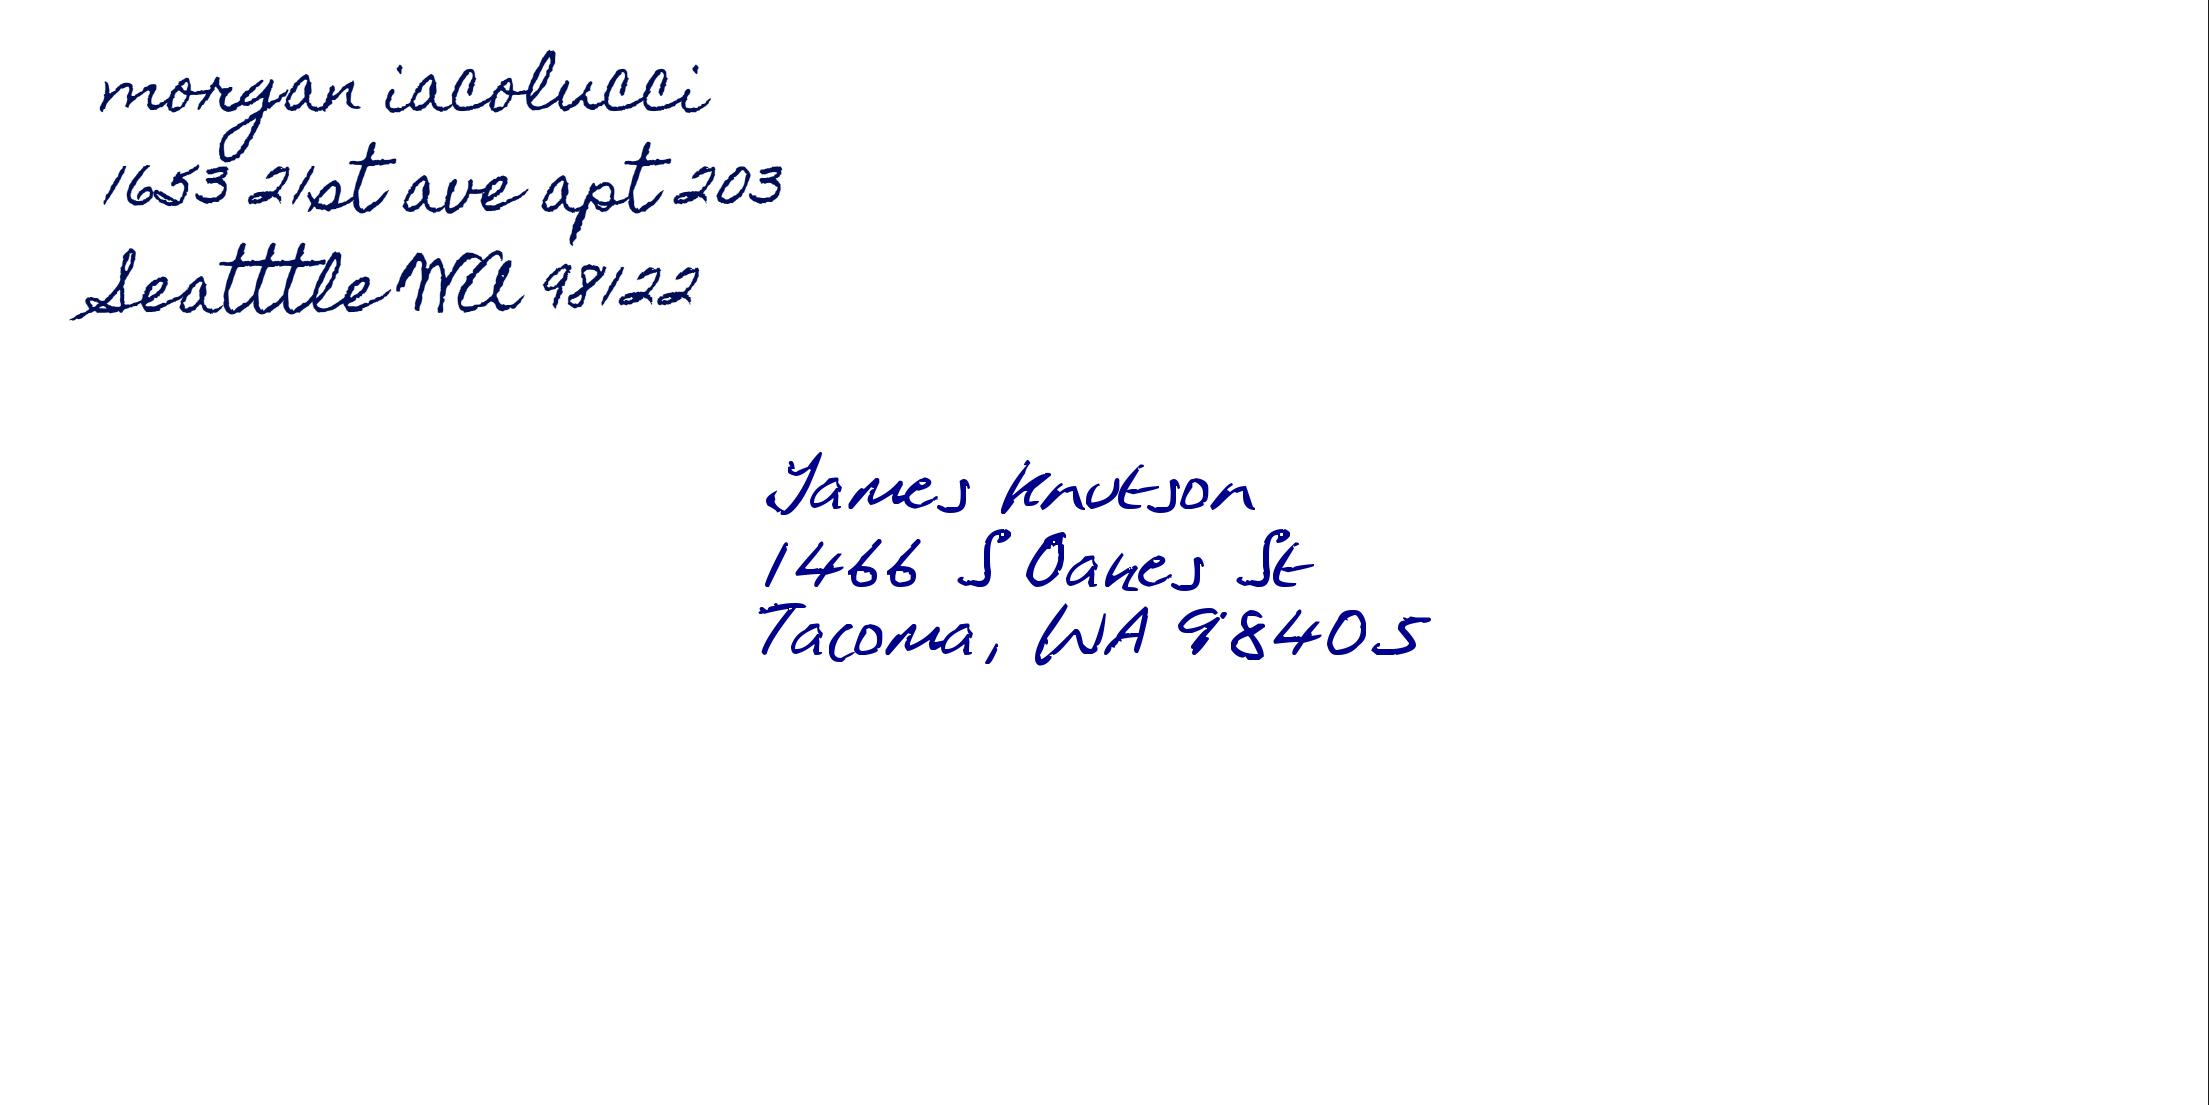 morgan iacolucci
1653 21st ave apt 203
Seatttle WA 98122
James Knutson
1466 S Oakes St
Tacoma, WA 98405